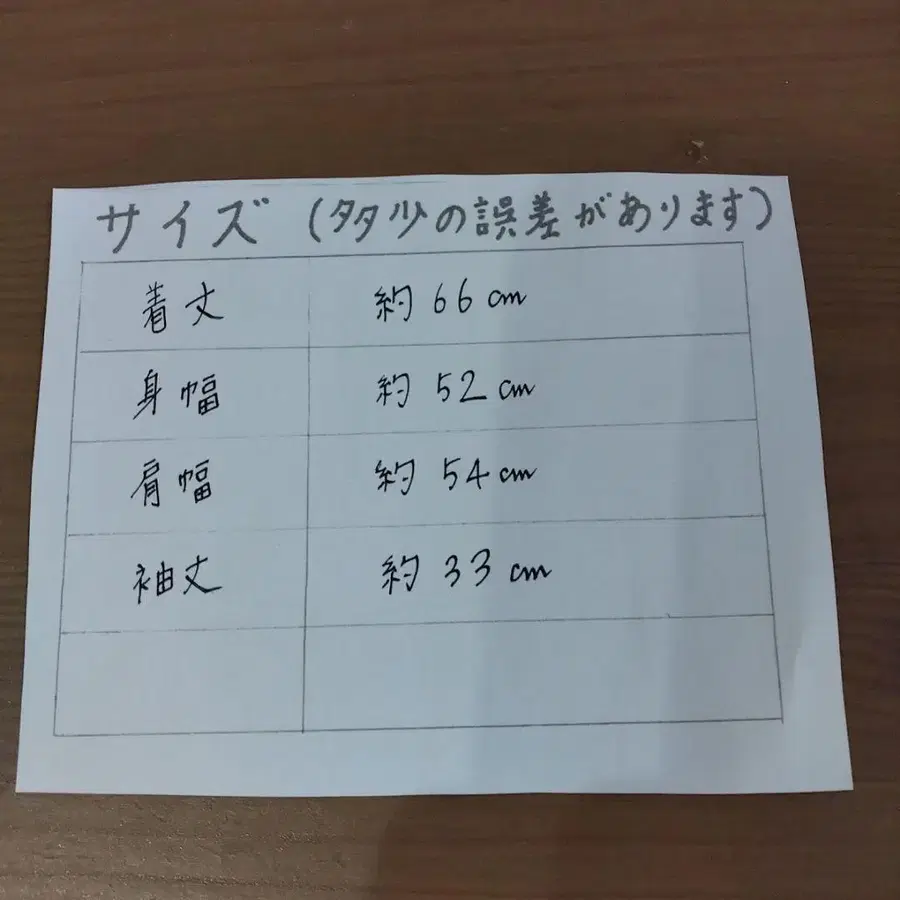 サイズ (多少の誤差があります)
着丈 約66cm
身幅 約52cm
肩幅 約54cm
袖丈 約33cm